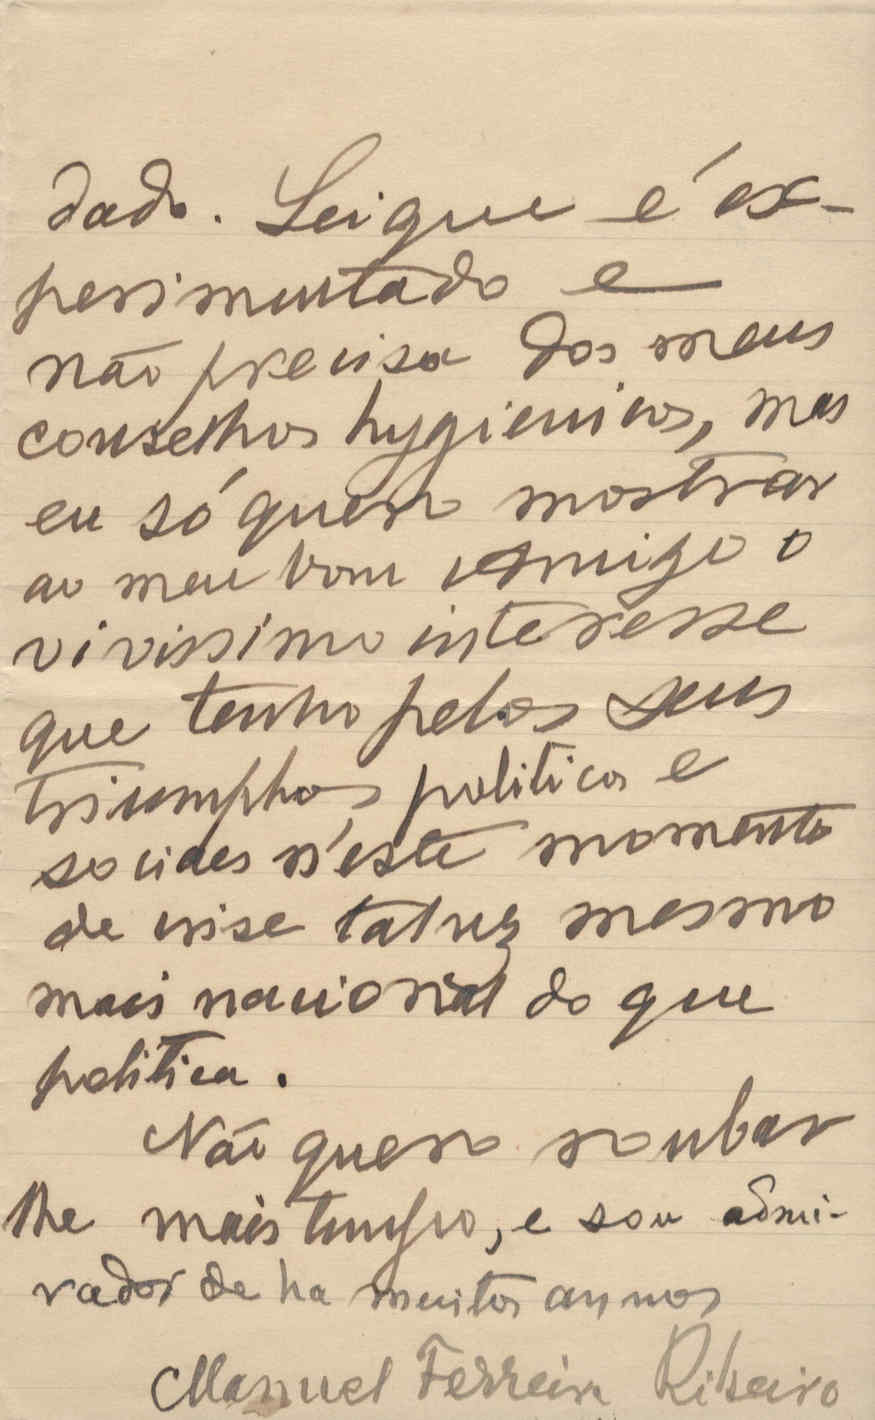 dado. Sei que é ex-
perimentado e
não precisa dos meus
conselhos hygienicos, mas
eu só quero mostrar
ao meu bom Amigo o
vivissimo interesse
que tenho pelos seus
triumphos politicos e
sociaes n'este momento
de crise talvez mesmo
mais nacional do que
politica.
Não quero roubar
lhe mais tempo, e sou admi-
rador de ha muitos annos
Manuel Ferreira Ribeiro